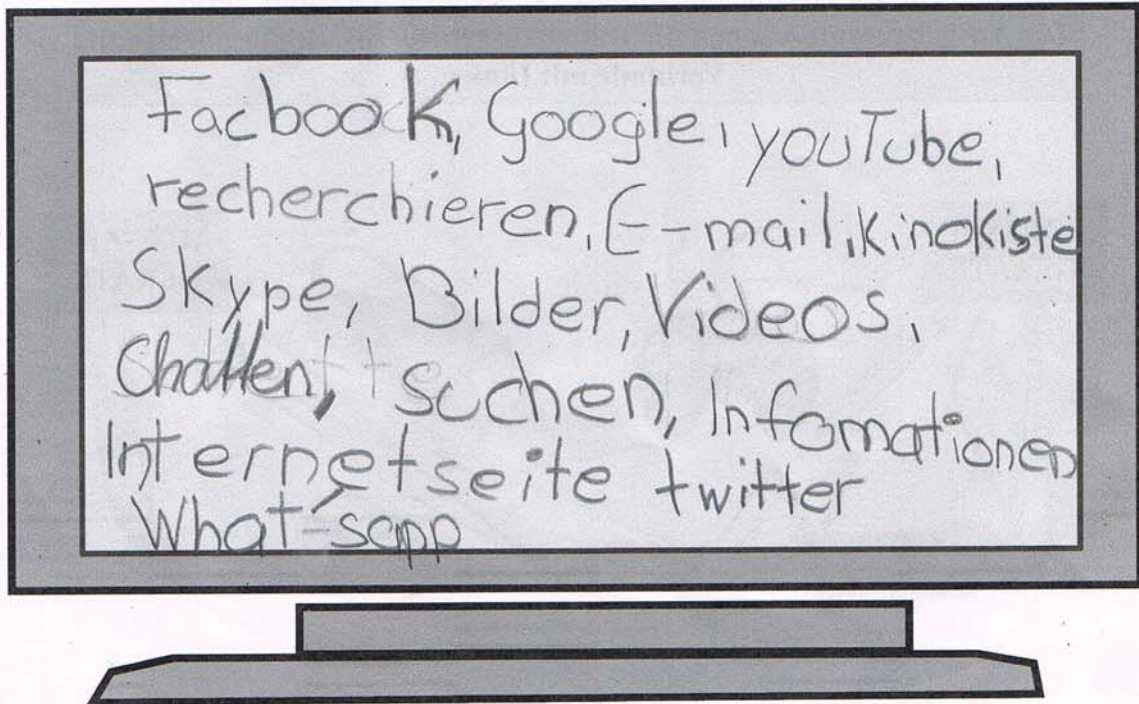 Facbook, Google, youTube,
recherchieren, E-mail, Kinokiste
Skype, Bilder, Videos,
Chatten, suchen, Infomationen
Internetseite twitter
What-sapp